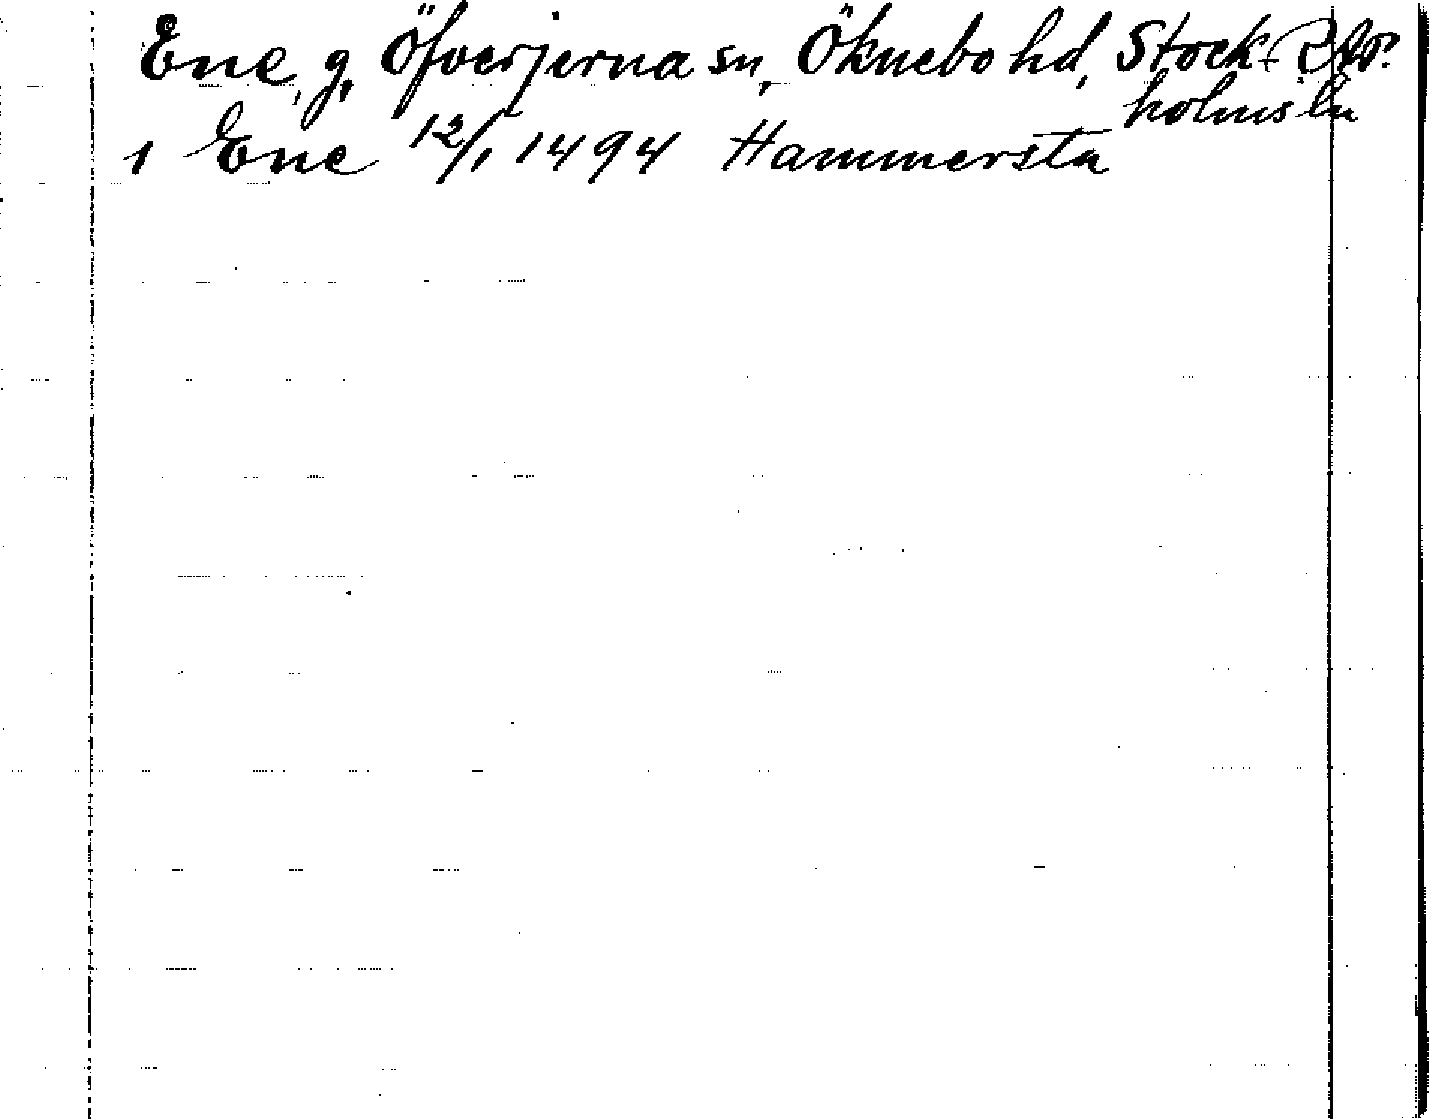 Ene, g, Öfverjerna sn, Öknebo hd, Stock-
holms län
1 Ene 12/1 1494 Hammersta